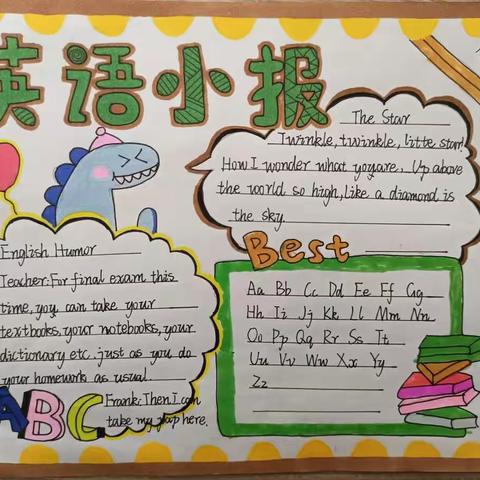 英语小报
The Star
Twinkle, twinkle, litte star!
How I wonder what youare, Up above
the world so high, like a diamond is
the sky
English Humor
Teacher: For final exam this
time, you can take your
textbooks, your notebooks, your
dictionary etc. just as you do
your homework as usual
Frank: Then I can
take my pap here.
ABC
Best
Aa Bb Cc Dd Ee Ff Gg
Hh Ii Jj Kk Ll Mm Nn
Oo Pp Qq Rr Ss Tt
Uu Vv Ww Xx Yy
Zz